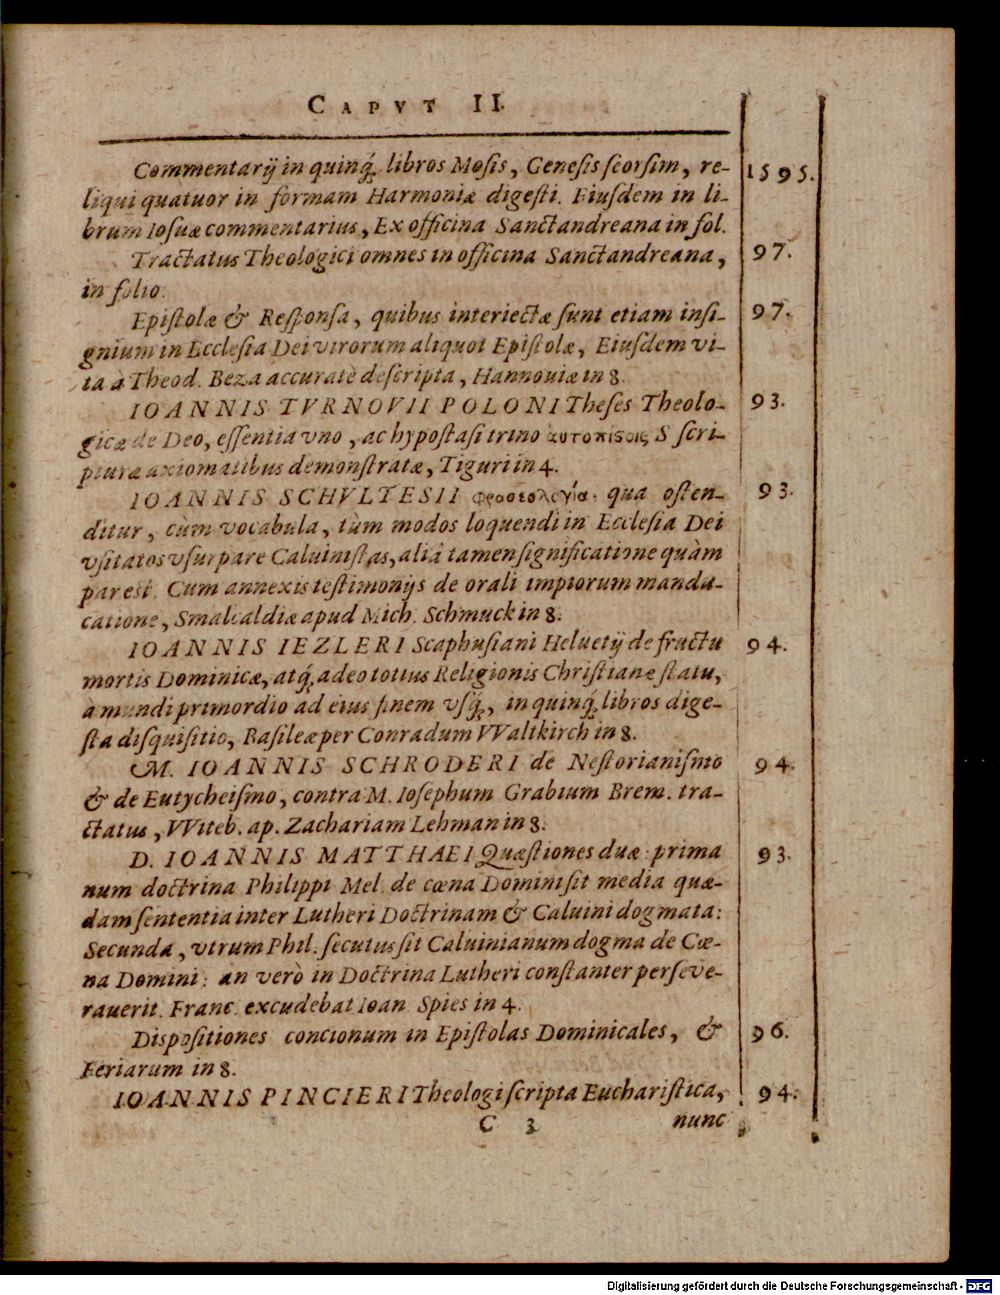 CAPVT II.
Commentarij in quinq́; libros Mosis, Genesis seorsim, re- 1595.
liqui quatuor in formam Harmoniæ digesti. Eiusdem in li-
brum Iosuæ commentarius, Ex officina Sanctandreana in fol.
Tractatus Theologici omnes in officina Sanctandreana, 97.
in folio.
Epistolæ & Responsa, quibus interiectæ sunt etiam insi- 97.
gnium in Ecclesia Dei virorum aliquot Epistolæ, Eiusdem vi-
ta à Theod. Beza accuratè descripta, Hannoviæ in 8.
IOANNIS TVRNOVII POLONI Theses Theolo- 93.
gicæ de Deo, essentia vno, ac hypostasi trino S scri-
pturæ axiomatibus demonstratæ, Tiguri in 4.
IOANNIS SCHVLTESII qua osten- 93.
ditur, cùm vocabula, tùm modos loquendi in Ecclesia Dei
vsitatos vsurpare Caluinistas, aliâ tamen significatione quàm
par est. Cum annexis testimonijs de orali impiorum mandu-
catione, Smalcaldiæ apud Mich. Schmuck in 8.
IOANNIS IEZLERI Scaphusiani Heluetij de fructu 94.
mortis Dominicæ, atq́; adeo totius Religionis Christianæ statu,
à mundi primordio ad eius finem vsq́;, in quinq́; libros dige-
sta disquisitio, Basileæ per Conradum VValtkirch in 8.
M. IOANNIS SCHRODERI de Nestorianismo 94.
& de Eutycheismo, contra M. Iosephum Grabium Brem. tra-
ctatus, VViteb. ap. Zachariam Lehman in 8.
D. IOANNIS MATTHAEI Quæstiones duæ: prima 93.
num doctrina Philippi Mel. de cœna Domini sit media quæ-
dam sententia inter Lutheri Doctrinam & Caluini dogmata:
Secunda, vtrum Phil. secutus sit Caluinianum dogma de Cœ-
na Domini: an verò in Doctrina Lutheri constanter perseve-
rauerit. Franc. excudebat Ioan. Spies in 4.
Dispositiones concionum in Epistolas Dominicales, & 96.
Feriarum in 8.
IOANNIS PINCIERI Theologi scripta Eucharistica, 94.
C 3 nunc
Digitalisierung gefördert durch die Deutsche Forschungsgemeinschaft - DFG